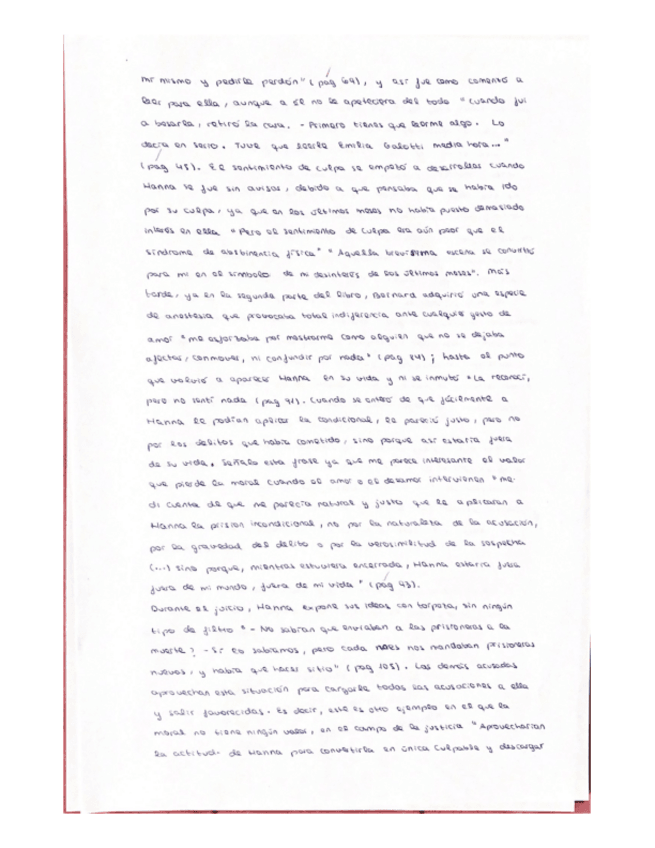 mi mismo y pedirle perdón" (pág 69), y así fue como comenzó a
leer para ella, aunque a él no le apeteciera del todo "Cuando fui
a besarla, retiró la cara. - Primero tienes que leerme algo. Lo
decía en serio. Tuve que leerle Emilia Galotti media hora..."
(pág 45). El sentimiento de culpa se empezó a desarrollar cuando
Hanna se fue sin avisar, debido a que pensaba que se había ido
por su culpa, ya que en los últimos meses no había puesto demasiado
interés en ella "Pero el sentimiento de culpa era aún peor que el
síndrome de abstinencia física" "Aquella brevísima escena se convirtió
para mí en el símbolo de mi desinterés de los últimos meses". Más
tarde, ya en la segunda parte del libro, Bernard adquirió una especie
de anestesia que provocaba total indiferencia ante cualquier gesto de
amor "me esforzaba por mostrarme como alguien que no se dejaba
afectar, conmover, ni confundir por nada" (pág 84); hasta el punto
que volvió a aparecer Hanna en su vida y ni se inmutó "La reconocí,
pero no sentí nada (pág 91). Cuando se enteró de que fácilmente a
Hanna le podían aplicar la condicional, le pareció justo, pero no
por los delitos que había cometido, sino porque así estaría fuera
de su vida. Señalo esta frase ya que me parece interesante el valor
que pierde la moral cuando el amor o el desamor intervienen "me
di cuenta de que me parecía natural y justo que le aplicaran a
Hanna la prisión incondicional, no por la naturaleza de la acusación,
por la gravedad del delito o por la verosimilitud de la sospecha
(...) sino porque, mientras estuviera encerrada, Hanna estaría fuera
fuera de mi mundo, fuera de mi vida" (pág 93).
Durante el juicio, Hanna expone sus ideas con torpeza, sin ningún
tipo de filtro "- No sabían que enviaban a las prisioneras a la
muerte? - Sí lo sabíamos, pero cada mes nos mandaban prisioneras
nuevas, y había que hacer sitio" (pág 105). Las demás acusadas
aprovechan esta situación para cargarle todas las acusaciones a ella
y salir favorecidas. Es decir, este es otro ejemplo en el que la
moral no tiene ningún valor, en el campo de la justicia "Aprovecharían
la actitud de Hanna para convertirla en única culpable y descargar